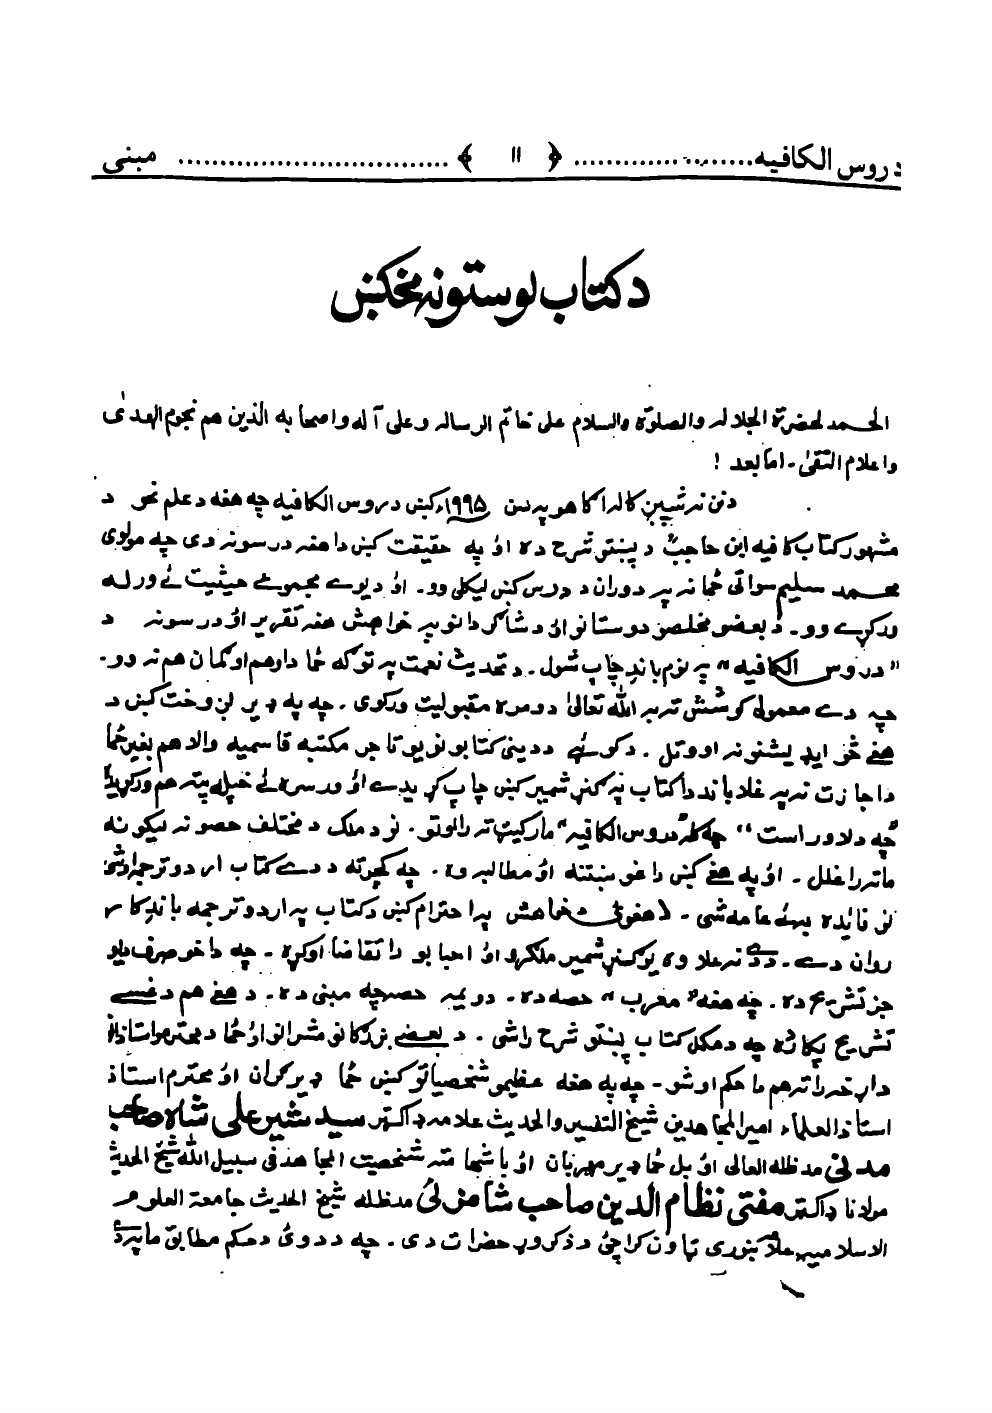 دروس الکافیه ........................ ﴿ ۱۱ ﴾ ........................ مبنی
د کتاب لوستونه مخکښ
الحمد لحضرة الجلاله والصلوة والسلام علی خاتم الرساله وعلی آله واصحابه الذین هم نجوم الهدیٰ
واعلام التقیٰ۔ اما بعد !
دنن نه شپږ کاله اګاهو په سن ۱۹۹۵ء کښ دروس الکافیه چه هغه د علم نحو د
مشهور کتاب کافیه ابن حاجبؒ د پښتو شرح ده اؤ په حقیقت کښ دا هغه درسونه دی چه مولوی
محمد سلیم سواتی ځما نه په دوران د درس کښ لیکلی وو۔ اؤ د یوے مجموعے حیثیت ئے ورله
ورکړے وو۔ د بعضو مخلصو دوستانو اؤ د شاګردانو په خواهش هغه تقریر اؤ درسونه د
"دروس الکافیه" په نوم باندِ چاپ شول۔ د تحدیث نعمت په توګه ځما دا وهم او ګمان هم نه وو۔
چه دے معمولی کوشش ته به الله تعالیٰ دومره مقبولیت ورکوی۔ چه په ډیر لږ وخت کښ د
هغے څو ایډیشنونه اووتل۔ د کوئټے د دینی کتابونو یو تاجر مکتبه قاسمیه والا هم بغیر ځما
د اجازت نه په غلا باندِ دا کتاب په کښ شمیر کښ چاپ کړیدے اؤ ورسره ئے خپله پته هم ورکړیدا
"چه دلاور است" چه کله "دروس الکافیه" مارکیټ ته راوتو۔ نو د ملک د مختلف حصو نه لیکونه
ماته راغلل۔ اؤ په هغے کښ دا غوښتنه اؤ مطالبه وه۔ چه کچرته د دے کتاب اردو ترجمه اوشی
نو فائده به ئے عامه شی۔ د هغوی د خواهش په احترام کښ د کتاب په اردو ترجمه باندِ کار
روان دے۔ د دے نه علاوه یو کښ شمیر ملګرو اؤ احبابو دا تقاضا اوکړه۔ چه دا خو صرف دیو
جز تشریح ده۔ چه هغه "معرب" حصه ده۔ دویمه حصه چه مبنی ده۔ د هغے هم د غسے
تشریح پکار ده چه د مکمل کتاب پښتو شرح راشی۔ د بعضے بزرګانو مشرانو اؤ ځما د محترمو استاذانو
د طرفه راته هم دا حکم اوشو۔ چه په هغه عظیمو شخصیاتو کښ ځما ډیر ګران اؤ محترم استاذ
استاذ العلماء امیر المجاهدین شیخ التفسیر والحدیث علامه ډاکټر سید شیر علی شاه صاحب
مدنی مدظله العالی اؤ بل ځما ډیر مهربان اؤ باشهامته شخصیت المجاهد فی سبیل الله شیخ الحدیث
مولانا ډاکټر مفتی نظام الدین صاحب شامزئی مدظله شیخ الحدیث جامعة العلوم
الاسلامیه علامه بنوری ټاون کراچی د ذکر وړ حضرات دی۔ چه د دوی د حکم مطابق ما په دے